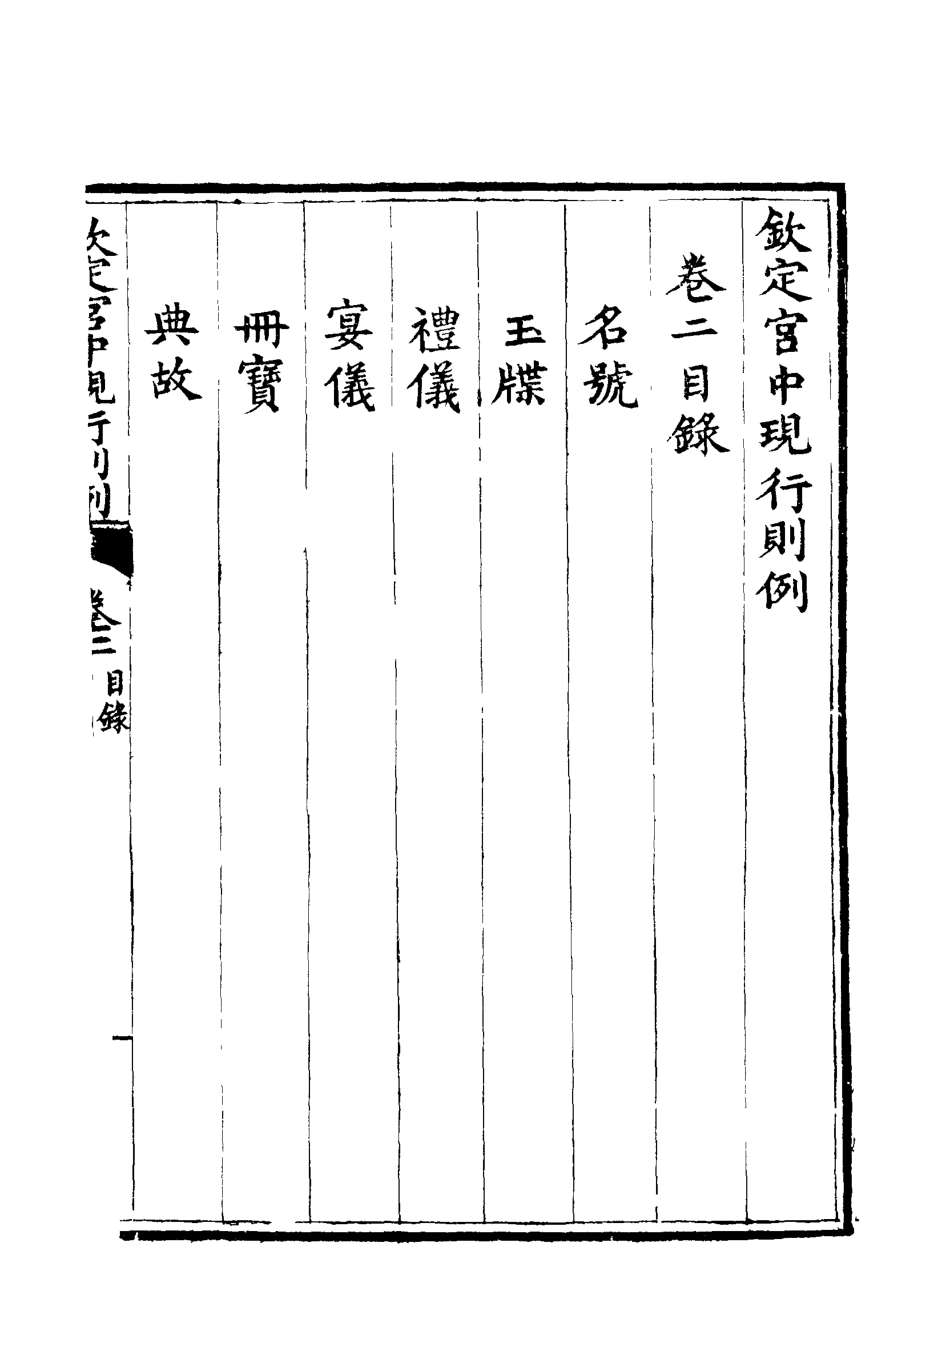 欽定宮中現行則例
卷二目錄
名號
玉牒
禮儀
宴儀
冊寶
典故
欽定宮中現行則例 卷二 目錄